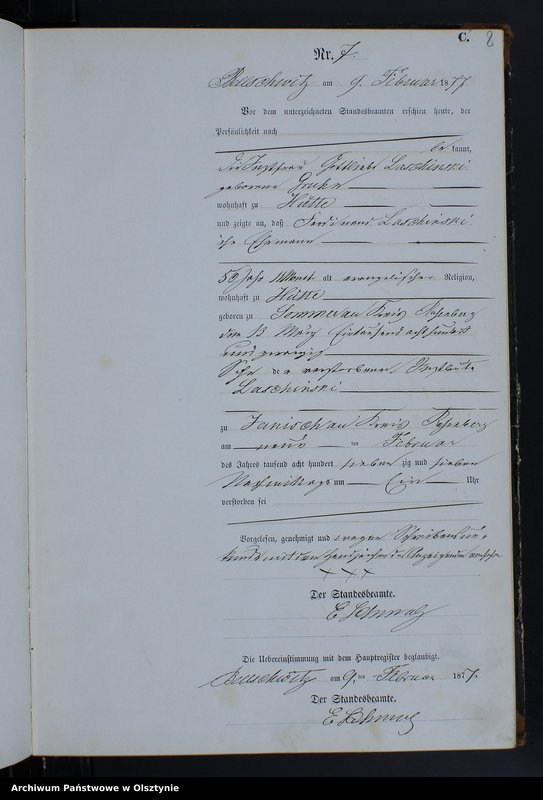 C. 8
Nr. 7.
am 9. Februar 1877
Vor dem unterzeichneten Standesbeamten erschien heute, der
Persönlichkeit nach
be kannt,
die Instfrau Gottliebe Laschinski
geborene
wohnhaft zu Hütte
und zeigte an, daß Ferdinand Laschinski
ihr Ehemann
Jahr Monat alt evangelischer Religion,
wohnhaft zu Hütte
geboren zu Sommerau Kreis Rosenberg
den 13 März Eintausend achthundert
und zwanzig
Sohn der verstorbenen Instleute
Laschinski
zu Januschau Kreis Rosenberg
am neun ten Februar
des Jahres tausend acht hundert sieben zig und sieben
Nachmittags um Ein Uhr
verstorben sei
Vorgelesen, genehmigt und wegen Schreibensun-
kunde mit den Handzeichen der Anzeigenden versehen
+ + +
Der Standesbeamte.
Die Uebereinstimmung mit dem Hauptregister beglaubigt.
am 9. ten Februar 1877.
Der Standesbeamte.
Archiwum Państwowe w Olsztynie